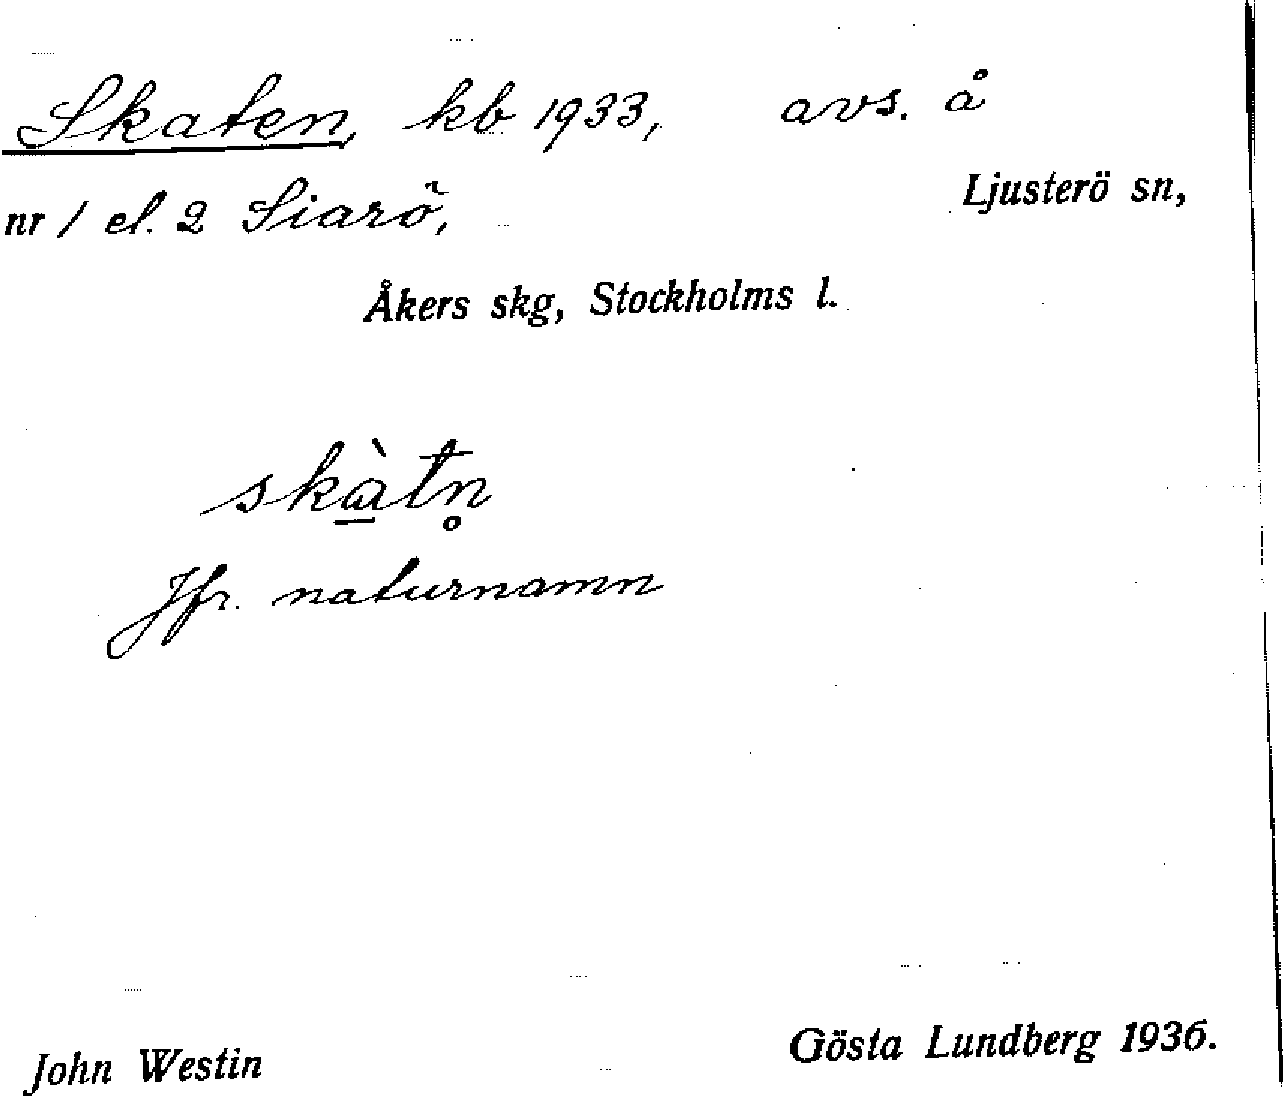 Skaten, kb 1933, avs. å
nr 1 el. 2 Siarö, Ljusterö sn,
Åkers skg, Stockholms l.
skàtn̥
Jfr. naturnamn
John Westin Gösta Lundberg 1936.